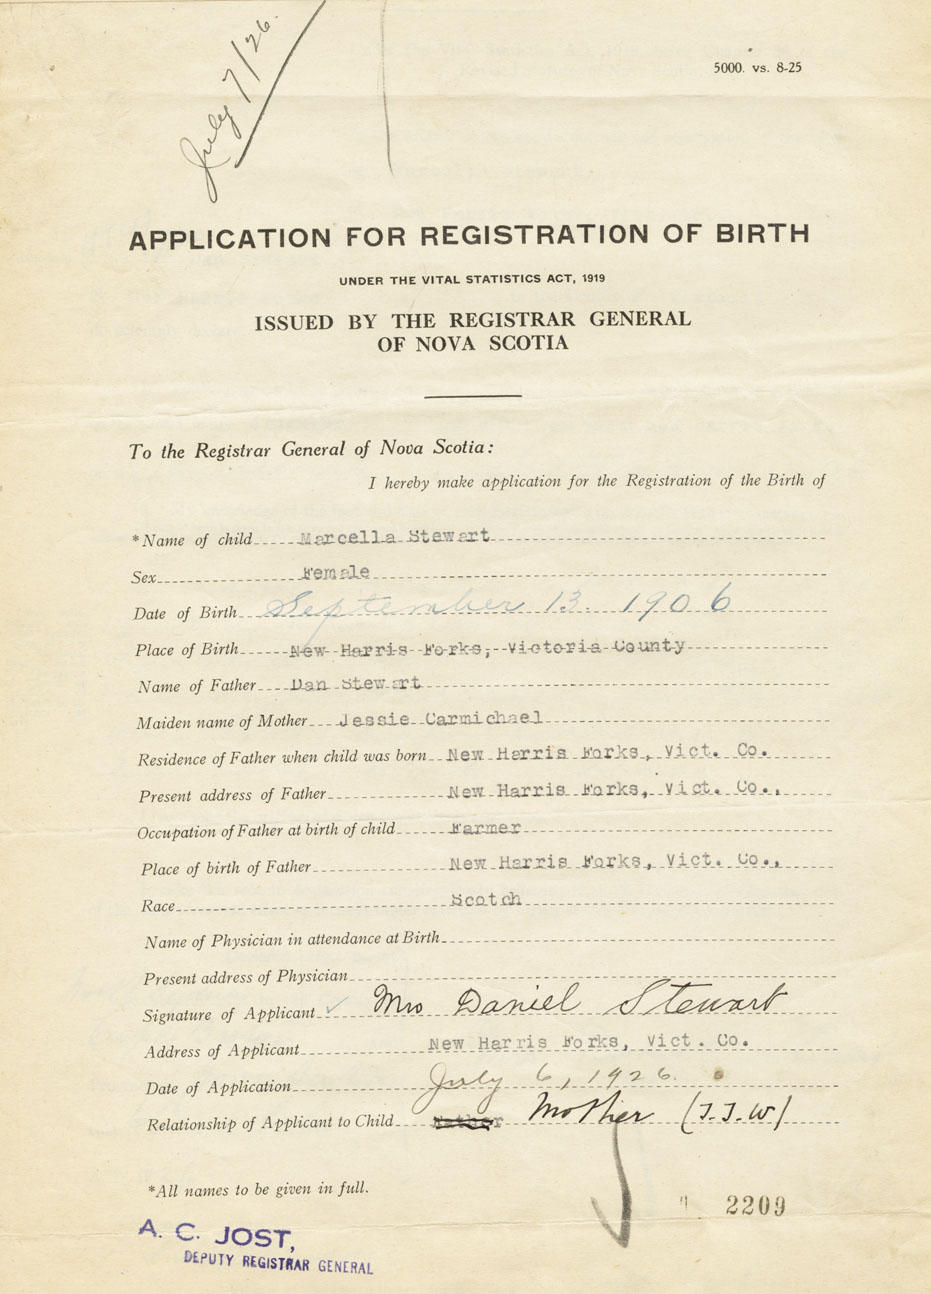 July 7/26.
5000. vs. 8-25
APPLICATION FOR REGISTRATION OF BIRTH
UNDER THE VITAL STATISTICS ACT, 1919
ISSUED BY THE REGISTRAR GENERAL
OF NOVA SCOTIA
To the Registrar General of Nova Scotia:
I hereby make application for the Registration of the Birth of
*Name of child Marcella Stewart
Sex Female
Date of Birth September 13. 1906
Place of Birth New Harris Forks, Victoria County
Name of Father Dan Stewart
Maiden name of Mother Jessie Carmichael
Residence of Father when child was born New Harris Forks, Vict. Co.
Present address of Father New Harris Forks, Vict. Co.,
Occupation of Father at birth of child Farmer
Place of birth of Father New Harris Forks, Vict. Co.,
Race Scotch
Name of Physician in attendance at Birth
Present address of Physician
Signature of Applicant Mrs Daniel Stewart
Address of Applicant New Harris Forks, Vict. Co.
Date of Application July 6, 1926.
Relationship of Applicant to Child Father Mother (J.J.W)
*All names to be given in full.
2209
A. C. JOST,
DEPUTY REGISTRAR GENERAL